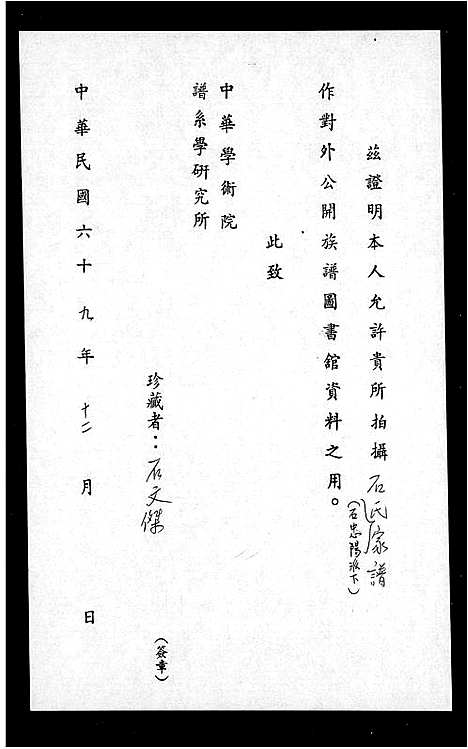 茲證明本人允許貴所拍攝石氏家譜
（石忠陽派下）
作對外公開族譜圖書舘資料之用。
此致
中華學術院
譜系學研究所
珍藏者：石文傑
（簽章）
中華民國六十九年十二月 日